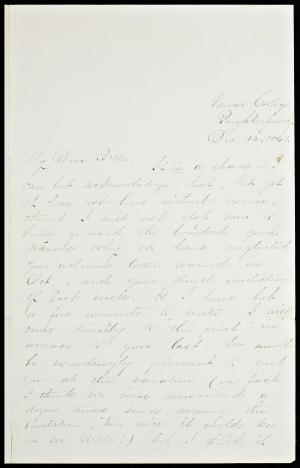 Vassar College,
Poughkeepsie,
Dec. 12, 1867.
My Dear Belle.
It is a shame - I
can but acknowledge that, but yet
it has not been without excuse,
though I will not stop now to
bring forward the hundred good
reasons why we have neglected
your welcome letter received in
Oct., and your kind invitation
of last week. As I have but
a few moments to write, I will
come directly to the point in
answer to your last. It would
be exceedingly pleasant to visit
you at the vacation (in fact
I think we have a
dozen times since receiving the
invitation, "how nice it would be
to see Belle"!), but I think it